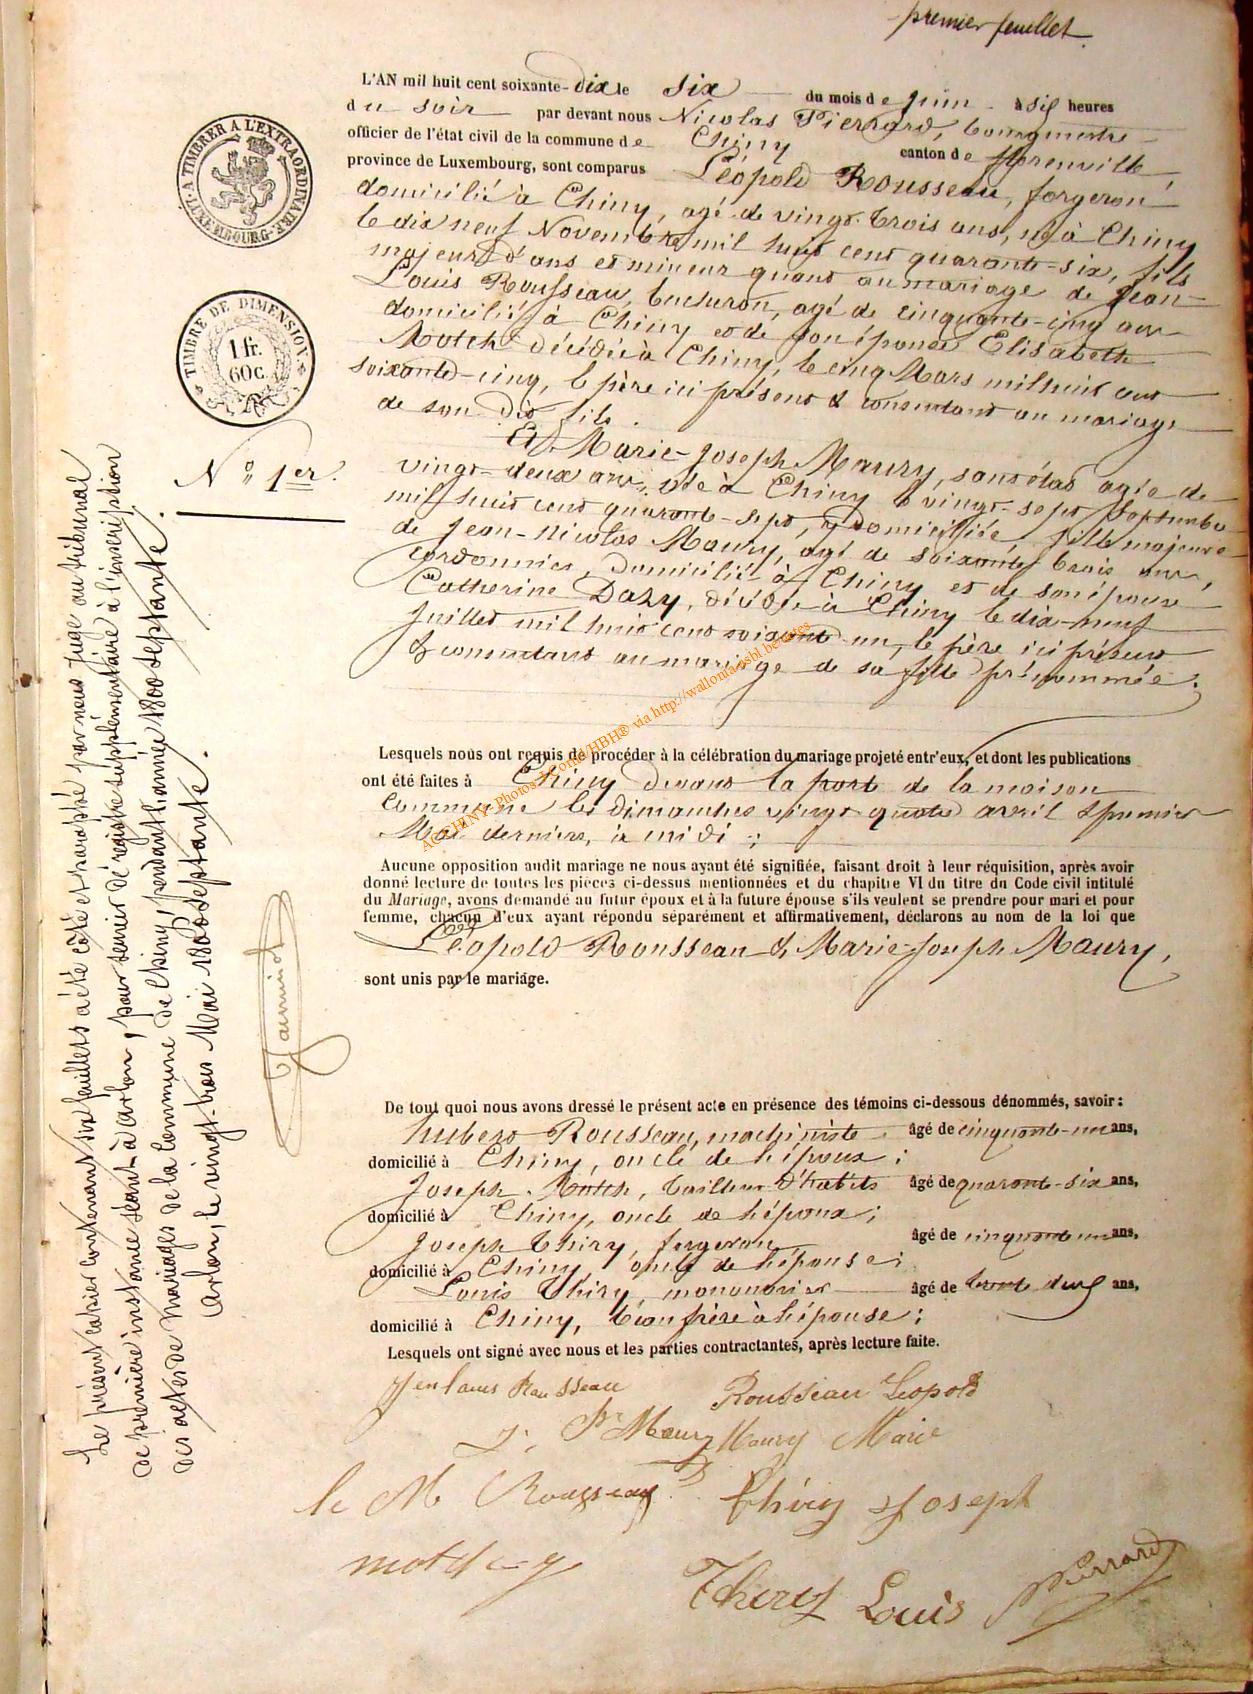 premier feuillet
L'AN mil huit cent soixante-dix le six du mois de juin à six heures
du soir par devant nous Nicolas Pierrard, bourgmestre
officier de l'état civil de la commune de Chiny canton de florenville,
province de Luxembourg, sont comparus Léopold Rousseau, forgeron
domicilié à Chiny, agé de vingt-trois ans, né à Chiny
le dix neuf Novembre mil huit cent quarante-six, fils
majeur d'ans et mineur quant au mariage de Jean
Louis Rousseau, bucheron, agé de cinquante-cinq ans
domicilié à Chiny et de son épouse Elisabeth
Motch décédée à Chiny, le cinq Mars mil huit cent
soixante-cinq, le père ici présent & consentant au mariage
de son dit fils.
Et Marie-Joseph Maury, sans état agée de
vingt-deux ans, née à Chiny le vingt-sept Septembre
mil huit cent quarante-sept, y domiciliée, fille majeure
de Jean-Nicolas Maury, agé de soixante trois ans,
cordonnier, domicilié à Chiny et de son épouse
Catherine Dazy, décédée à Chiny le dix-neuf
Juillet mil huit cent soixante-un, le père ici présent
& consentant au mariage de sa fille prénommée.
Lesquels nous ont requis de procéder à la célébration du mariage projeté entr'eux, et dont les publications
ont été faites à Chiny devant la porte de la maison
Commune les dimanches vingt quatre avril & premier
Mai derniers, à midi ;
Aucune opposition audit mariage ne nous ayant été signifiée, faisant droit à leur réquisition, après avoir
donné lecture de toutes les pièces ci-dessus mentionnées et du chapitre VI du titre du Code civil intitulé
du Mariage, avons demandé au futur époux et à la future épouse s'ils veulent se prendre pour mari et pour
femme, chacun d'eux ayant répondu séparément et affirmativement, déclarons au nom de la loi que
Léopold Rousseau & Marie-Joseph Maury,
sont unis par le mariage.
De tout quoi nous avons dressé le présent acte en présence des témoins ci-dessous dénommés, savoir :
hubert Rousseau, machiniste âgé de cinquante-un ans,
domicilié à Chiny, oncle de l'époux ;
Joseph Motch, tailleur d'habits âgé de quarante-six ans,
domicilié à Chiny, oncle de l'époux ;
Joseph Thiry, forgeron âgé de cinquante un ans,
domicilié à Chiny oncle de l'épouse ;
Louis Thiry, manouvrier âgé de trente deux ans,
domicilié à Chiny, beau frère à l'épouse ;
Lesquels ont signé avec nous et les parties contractantes, après lecture faite.
Jenlouis Rousseau Rousseau Léopold
J. N. Maury Maury Marie
Rousseau Thiry Joseph
motch
Thiry Louis Pierrard
A TIMBRER A L'EXTRAORDINAIRE
LUXEMBOURG
TIMBRE DE DIMENSION
1 fr.
60 c.
N° 1er.
Le présent cahier contenant six feuillets a été coté et paraphé par nous Juge au tribunal
de première instance séant à arlon, pour servir de registre supplémentaire à l'inscription
des actes de Mariages de la Commune de Chiny, pendant l'année 1800 septante.
arlon, le vingt-trois Mai 1800 septante.
via http://wallonia-asbl.be